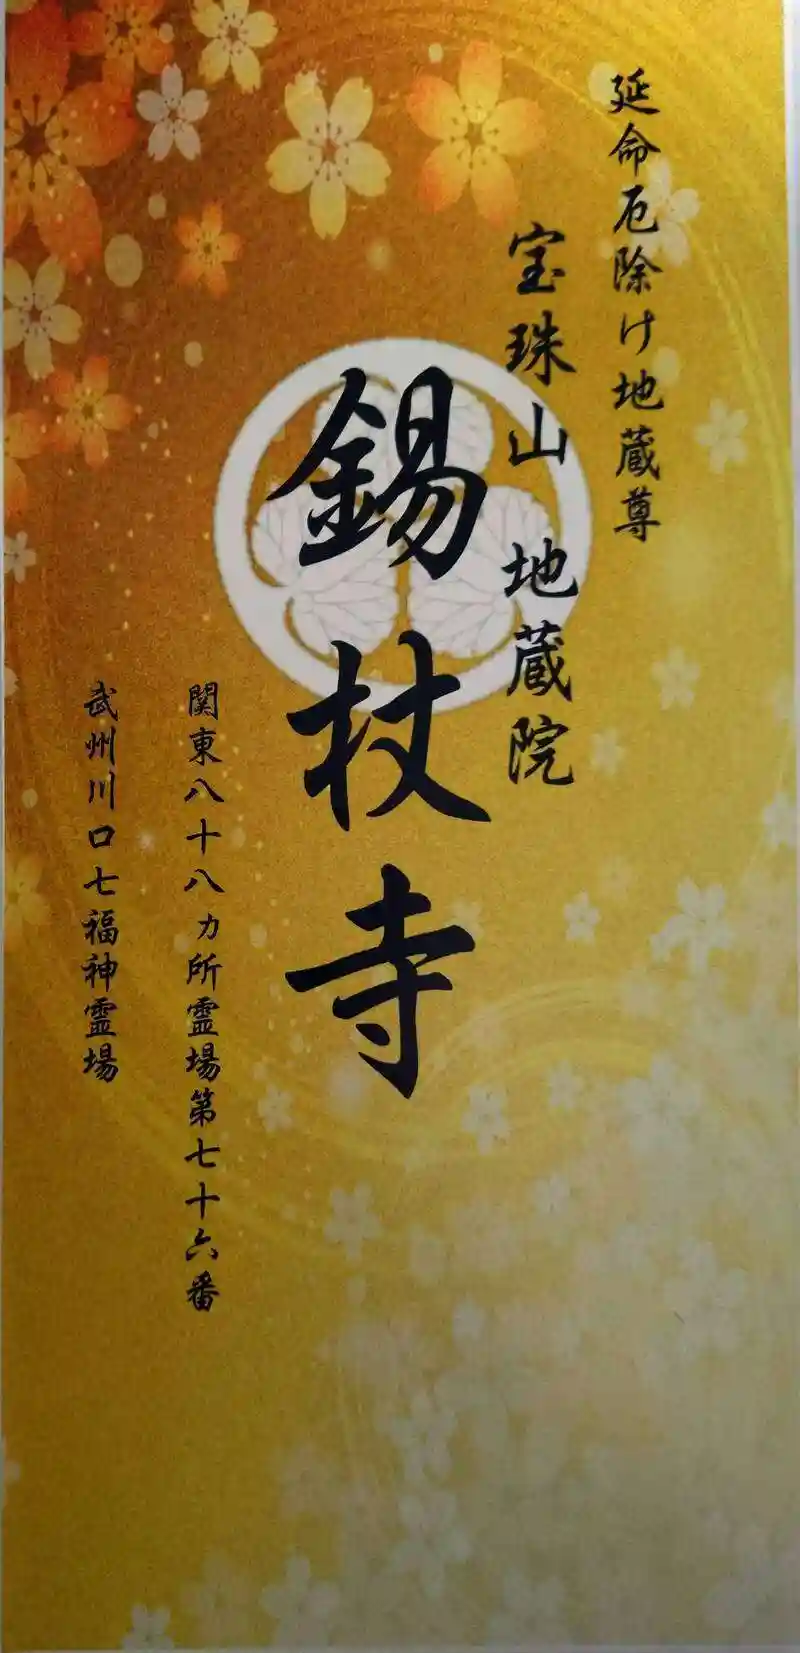 延命厄除け地蔵尊
宝珠山 地蔵院
錫杖寺
関東八十八カ所霊場第七十六番
武州川口七福神霊場